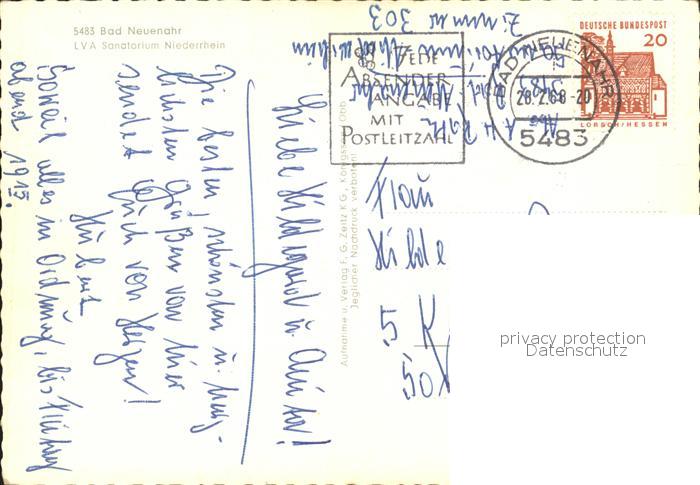 5483 Bad Neuenahr
LVA Sanatorium Niederrhein
Liebe Hildegard u.
Die besten, schönsten u.
liebsten Grüßen von hier
sendet Euch von Herzen!
Hubert
Soweit alles in Ordnung, bis
abend 1915.
Aufnahme u. Verlag F. G. Zeitz KG., Königssee/Obb.
Jeglicher Nachdruck verboten!
JEDE
ABSENDER
ANGABE
MIT
POSTLEITZAHL
BAD NEUENAHR
28.2.68-20
5483
DEUTSCHE BUNDESPOST
20
LORSCH/HESSEN
5483 Bad
Zimmer 303
Frau
Hilde
5 K
50
privacy protection
Datenschutz